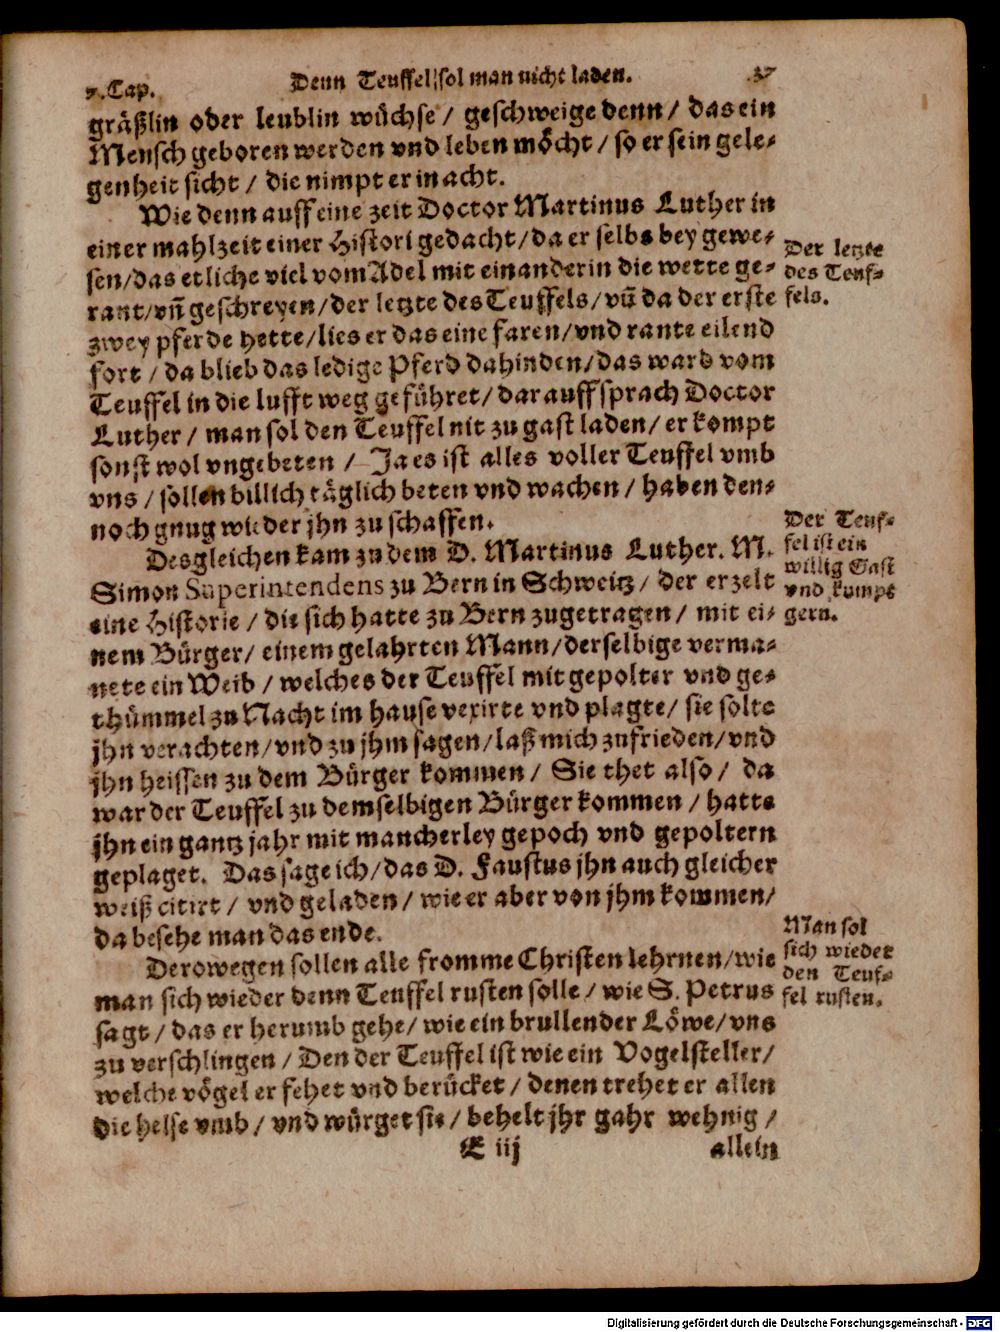 7. Cap. Denn Teuffel/sol man nicht laden. 37
gräßlin oder leublin wüchse / geschweige denn / das ein
Mensch geboren werden vnd leben möcht / so er sein gele-
genheit sicht / die nimpt er in acht.
Wie denn auff eine zeit Doctor Martinus Luther in
einer mahlzeit einer Histori gedacht/da er selbs bey gewe-
sen/das etliche viel vom Adel mit einander in die wette ge-
rant/vñ geschreyen/der letzte des Teuffels/vñ da der erste
zwey pferde hette/lies er das eine faren/vnd rante eilend
fort / da blieb das ledige Pferd dahinden/das ward vom
Teuffel in die lufft weg geführet/darauff sprach Doctor
Luther / man sol den Teuffel nit zu gast laden/er kompt
sonst wol vngebeten / Ja es ist alles voller Teuffel vmb
vns / sollen billich täglich beten vnd wachen / haben den-
noch gnug wieder jhn zu schaffen.
Der letzte
des Teuf-
fels.
Desgleichen kam zu dem D. Martinus Luther. M.
Simon Superintendens zu Bern in Schweitz / der erzelt
eine Historie / die sich hatte zu Bern zugetragen / mit ei-
nem Bürger/ einem gelahrten Mann/derselbige verma-
nete ein Weib / welches der Teuffel mit gepolter vnd ge-
thümmel zu Nacht im hause vexirte vnd plagte/ sie solte
jhn verachten/vnd zu jhm sagen/laß mich zufrieden/vnd
jhn heissen zu dem Bürger kommen / Sie thet also / da
war der Teuffel zu demselbigen Bürger kommen / hatte
jhn ein gantz jahr mit mancherley gepoch vnd gepoltern
geplaget. Das sage ich/das D. Faustus jhn auch gleicher
weiß citirt / vnd geladen / wie er aber von jhm kommen/
da besehe man das ende.
Der Teuf-
fel ist ein
willig Gast
vnd kumpt
gern.
Derowegen sollen alle fromme Christen lehrnen/wie
man sich wieder denn Teuffel rusten solle / wie S. Petrus
sagt / das er herumb gehe/ wie ein brullender Löwe/vns
zu verschlingen / Den der Teuffel ist wie ein Vogelsteller/
welche vögel er fehet vnd berücket / denen trehet er allen
die helse vmb / vnd würget sie / behelt jhr gahr wehnig /
Man sol
sich wieder
den Teuf-
fel rusten.
E iij allein
Digitalisierung gefördert durch die Deutsche Forschungsgemeinschaft - DFG